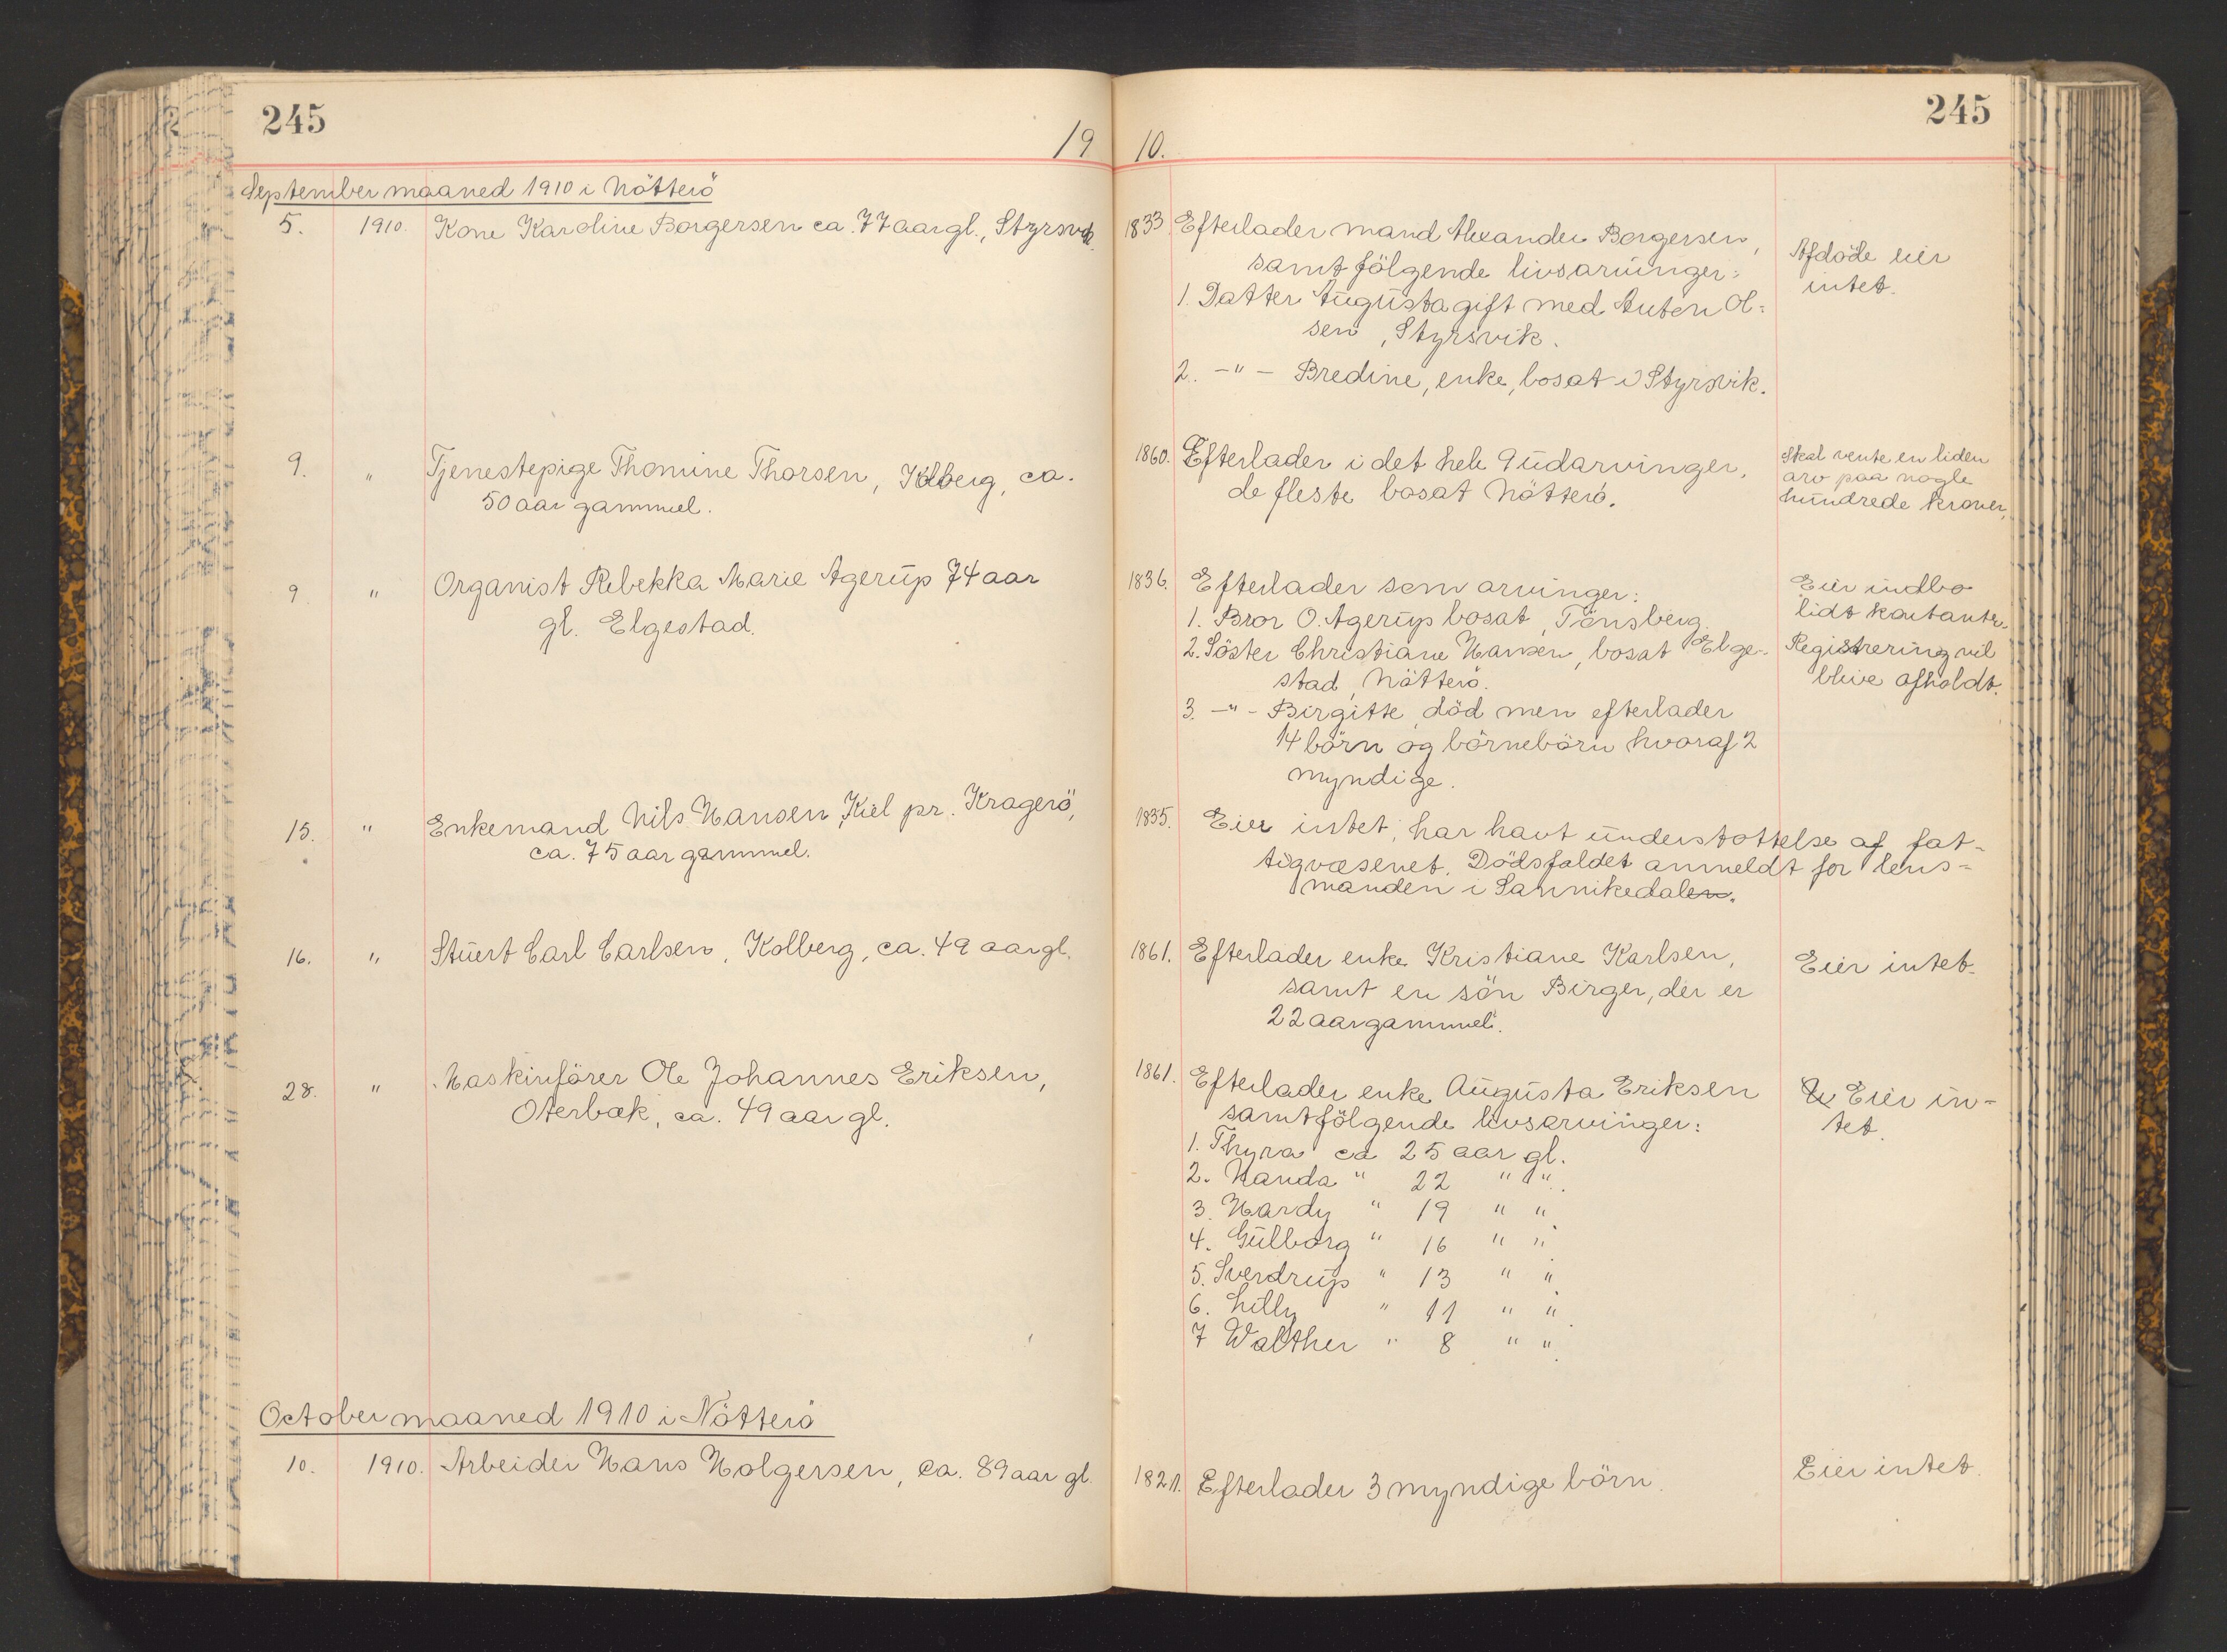 245
245
19 10.
September maaned 1910 i Nötterö
5. 1910. Kone Karoline Borgersen ca. 77 aar gl., Styrsvik.
1833 Efterlader mand Alexander Borgersen,
samt fölgende livsarvinger:
1. Datter Augusta gift med Anton Ol-
sen, Styrsvik.
2. -"- Bredine, enke, bosat i Styrsvik.
Afdöde eier
intet.
9. " Tjenestepige Thomine Thorsen, Kolberg, ca.
50 aar gammel.
1860. Efterlader i det hele 9 udarvinger,
de fleste bosat Nötterö.
Skal vente en liden
arv paa nogle
hundrede kroner,
9 " Organist Rebekka Marie Agerup 74 aar
gl. Elgestad.
1836. Efterlader som arvinger:
1. Bror O. Agerup bosat, Tönsberg.
2. Söster Christiane Hansen, bosat Elge-
stad, Nötterö.
3. -"- Birgitte, död men efterlader
14 börn og börnebörn hvoraf 2
myndige.
Eier indbo
lidt kontanter.
Registrering vil
blive afholdt.
15. " Enkemand Nils Hansen, Kiel pr. Kragerö,
ca. 75 aar gammel.
1835. Eier intet, har havt understottelse af fat-
tigvæsenet. Dödsfaldet anmeldt for lens-
manden i Sannikedalen.
16. " Stuert Carl Carlsen, Kolberg, ca. 49 aar gl.
1861. Efterlader enke Kristiane Karlsen,
samt en sön Birger, der er
22 aar gammel.
Eier intet.
28. " Maskinförer Ole Johannes Eriksen,
Oterbæk, ca. 49 aar gl.
1861. Efterlader enke Augusta Eriksen
samt fölgende livsarvinger:
1. Thyra ca 25 aar gl.
2. Nanda " 22 " ".
3. Hardy " 19 " "
4. Gulborg " 16 " "
5. Sverdrup " 13 " "
6. Lilly " 11 " "
7 Walther " 8 " "
Eier in-
tet.
October maaned 1910 i Nötterö
10. 1910. Arbeider Hans Holgersen, ca. 89 aar gl.
1821. Efterlader 3 myndige börn.
Eier intet.